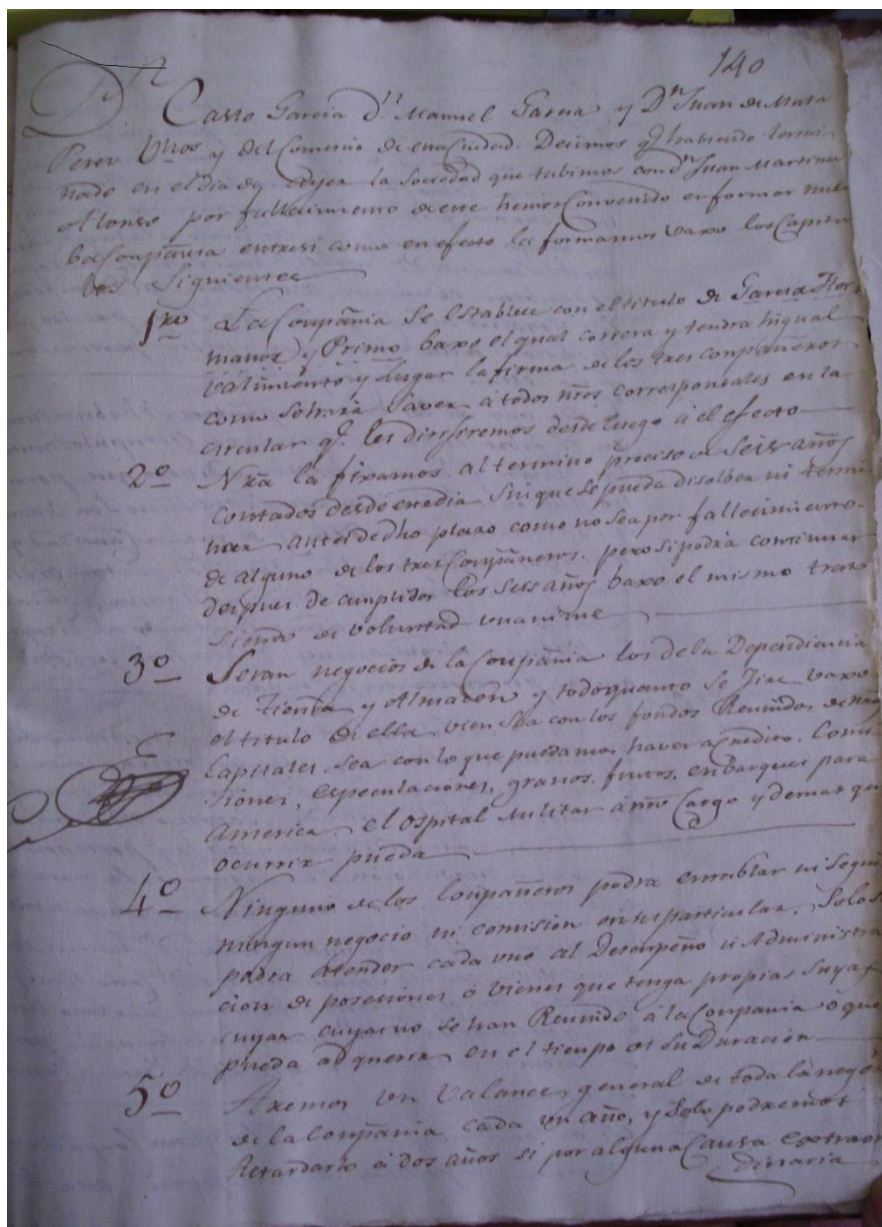 140
Dn Casto Garcia Dn Manuel Garcia y Dn Juan de Mata
Perez Vnos y del Comercio de esta Ciudad. Decimos q.e habiendo termi
nado en el dia de ayer la Sociedad que tubimos con dn Juan Martinez
Alonso por fallecimiento de este hemos Convenido en formar nue
ba Conpañia entresi como en efecto la formamos vaxo los Capitu
los Siguientes
1ro La Conpañia se Establece con el titulo de Garcia Her
manos y Primo baxo el qual correra y tendra higual
valimiento y Lugar la firma de los tres conpañeros
como se hará Saver á todos ntros corresponsales en la
circular q.e les dirijiremos desde luego á el efecto
2o Ntra la fixamos al termino preciso de Seis años
contados desde este dia Sin que se pueda disolber ni termi
nar antes de dho plazo como no sea por fallecimiento
de alguno de los tres Conpañeros. pero si podrá continuar
despues de cunplidos los Seis años baxo el mismo trato
siendo de voluntad unanime
3o Seran negocios de la Conpañia los de la Dependiencia
de Tienda y Almacen y todo quanto se Jire vaxo
el titulo de ella, vien sea con los fondos Reunidos de ntros
Capitales. sea con lo que puedamos haver a credito. Comi
siones, especulaciones, granos, frutos, enbarques para
America el Ospital Militar á nro Cargo y demas que
ocurrir pueda
4o Ninguno de los Conpañeros podra entablar ni Seguir
ningun negocio ni comision en su particular. Solo se
podra atender cada uno al Desenpeño u Administra
cion de posesiones ó vienes que tenga propias Suyas
cuyas no se han Reunido á la Conpania ó que
pueda adquerir en el tienpo de su Duracion
5o Aremos un Valance general de toda la nego
de la Conpañia cada un año, y Solo podremos
Retardarlo á dos años si por alguna Causa Extraor
dinaria